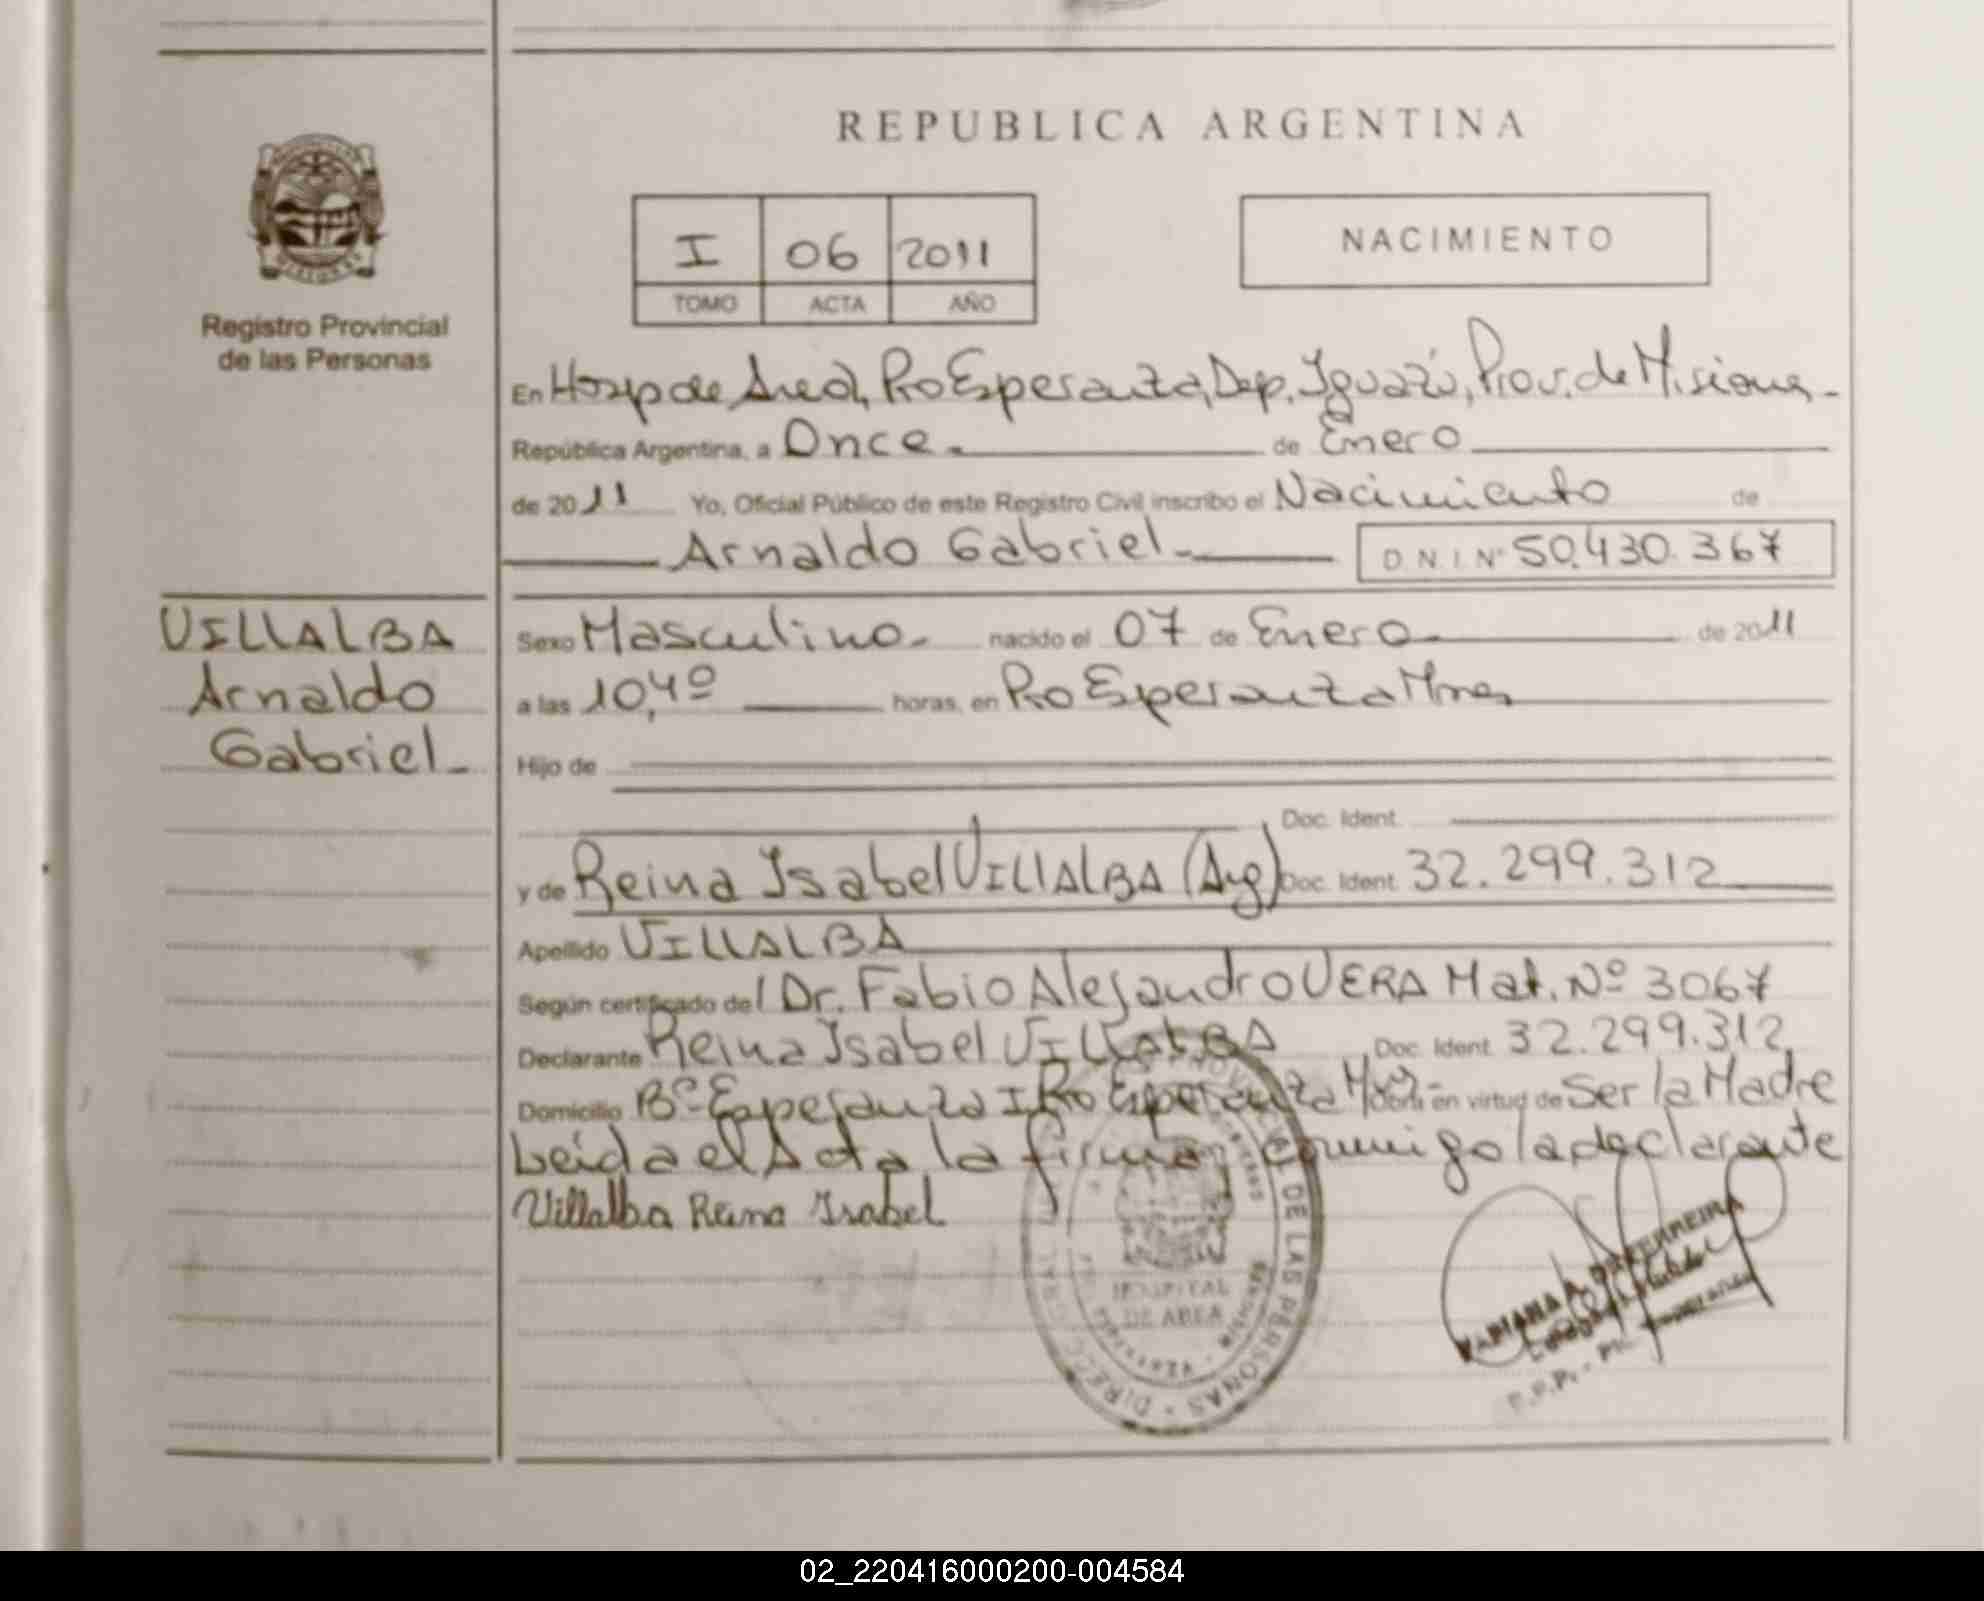 REPUBLICA ARGENTINA
I 06 2011
TOMO ACTA AÑO
NACIMIENTO
Registro Provincial
de las Personas
En Hosp de Area, Pto Esperanza, Dep. Iguazú, Prov. de Misiones -
República Argentina, a Once de Enero
de 2011 Yo, Oficial Público de este Registro Civil inscribo el Nacimiento de
Arnaldo Gabriel D.N.I. Nº 50.430.367
VILLALBA
Arnaldo
Gabriel
Sexo Masculino nacido el 07 de Enero de 2011
a las 10,40 horas, en Pto Esperanza Mnes
Hijo de
Doc. Ident.
y de Reina Isabel VILLALBA (Arg) Doc. Ident. 32.299.312
Apellido VILLALBA
Según certificado del Dr. Fabio Alejandro VERA Mat. Nº 3067
Declarante Reina Isabel VILLALBA Doc. Ident. 32.299.312
Domicilio Bº Esperanza I Pto Esperanza Obra en virtud de Ser la Madre
Leída el Acta la firma conmigo la declarante
Villalba Reina Isabel
DE LAS PERSONAS
HOSPITAL
DE AREA
FERREIRA
02_220416000200-004584